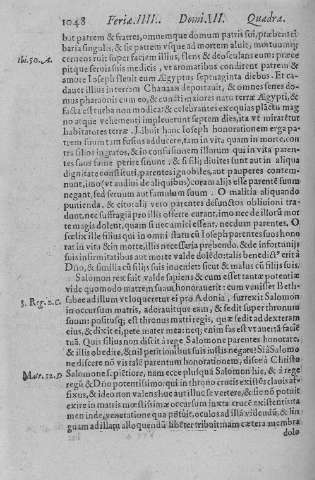 1048 Feria.IIII. Domi.III. Quadra.
bat patrem & fratres, omnemque domum patris sui, præbens cibaria singulis, & sic patrem vsque ad mortem aluit,
cens ruit super faciem illius, flens & deosculans eum: præcepitque seruis suis medicis, vt aromatibus condirent patrem &
amore Ioseph fleuit eum Ægyptus septuaginta diebus. Et cadauer illius in terram Chanaan deportauit, & omnes senes domus pharaonis cum eo, & cuncti maiores natu terræ Ægypti, &
facta est turba non modica: & celebrantes exequias planctu magno atque vehementi impleuerunt septem dies, ita vt
habitatores terræ
trem suum tam fusius adducere, tam in vita quam in morte, contra filios ingratos, & in
tes suos fame perire sinunt, & si filij diuites sunt aut in aliqua
dignitate constituti, parentes ignobiles, aut pauperes contemnunt, imo (vt audiui de aliquibus) coram alijs esse parentē suum
negant, sed seruum aut famulum suum. O malitia aliquando
punienda, & cito: alij vero parentes defunctos obliuioni tradunt, nec suffragia pro illis offerre curant, imo nec de illorū morte magis dolent, quam si nec amici essent, nedum parentes. O
fœlix ille filius qui in omni statu sicut Ioseph parentes suos honorat in vita & in morte, illis necessaria præbendo, & de infortunijs
suis infirmitatibus aut morte valde dolēdo: talis
Dño, & similia ei filijs suis incedens sicut & malus ei filijs suis.
Salomon rex fuit valde sapiens & cum esset tantæ potentiæ
vide quomodo matrem suam honorauerit: cum venisset Bethsabee ad illum vt loqueretur ei pro Adonia, surrexit Salomon
in occursum matris, adorauitque eam, & sedit super thronum
suum: positusq; est thronus matri regis, quæ sedit ad dexteram
eius, & dixit ei, pete mater mea: neq; enim fas est vt auertā faciē
tuā. Quis filius non discit à rege Salomone parentes honorare,
& illis obedire, & nil petitionibus suis iustis negare? Si à Salomone discere nō vis tale parentum honoratione, disce à Christo
Salomone s. pictore, nam ecce plusquā Salomon hic, & à rege
regū & Dño potentissimo: qui in throno crucis existēs clauis affixus, & ideo non valens huc aut illuc se vertere, & siē nō potuit
exire in matris mœstissimæ occursum iuxta crucē existentis, tamen inde
guam ad illam alloquendū libēter tribuit: nam cætera membra
dolo
Ibi.50.A.
3. Reg. 2. C.
Matt. 12. D